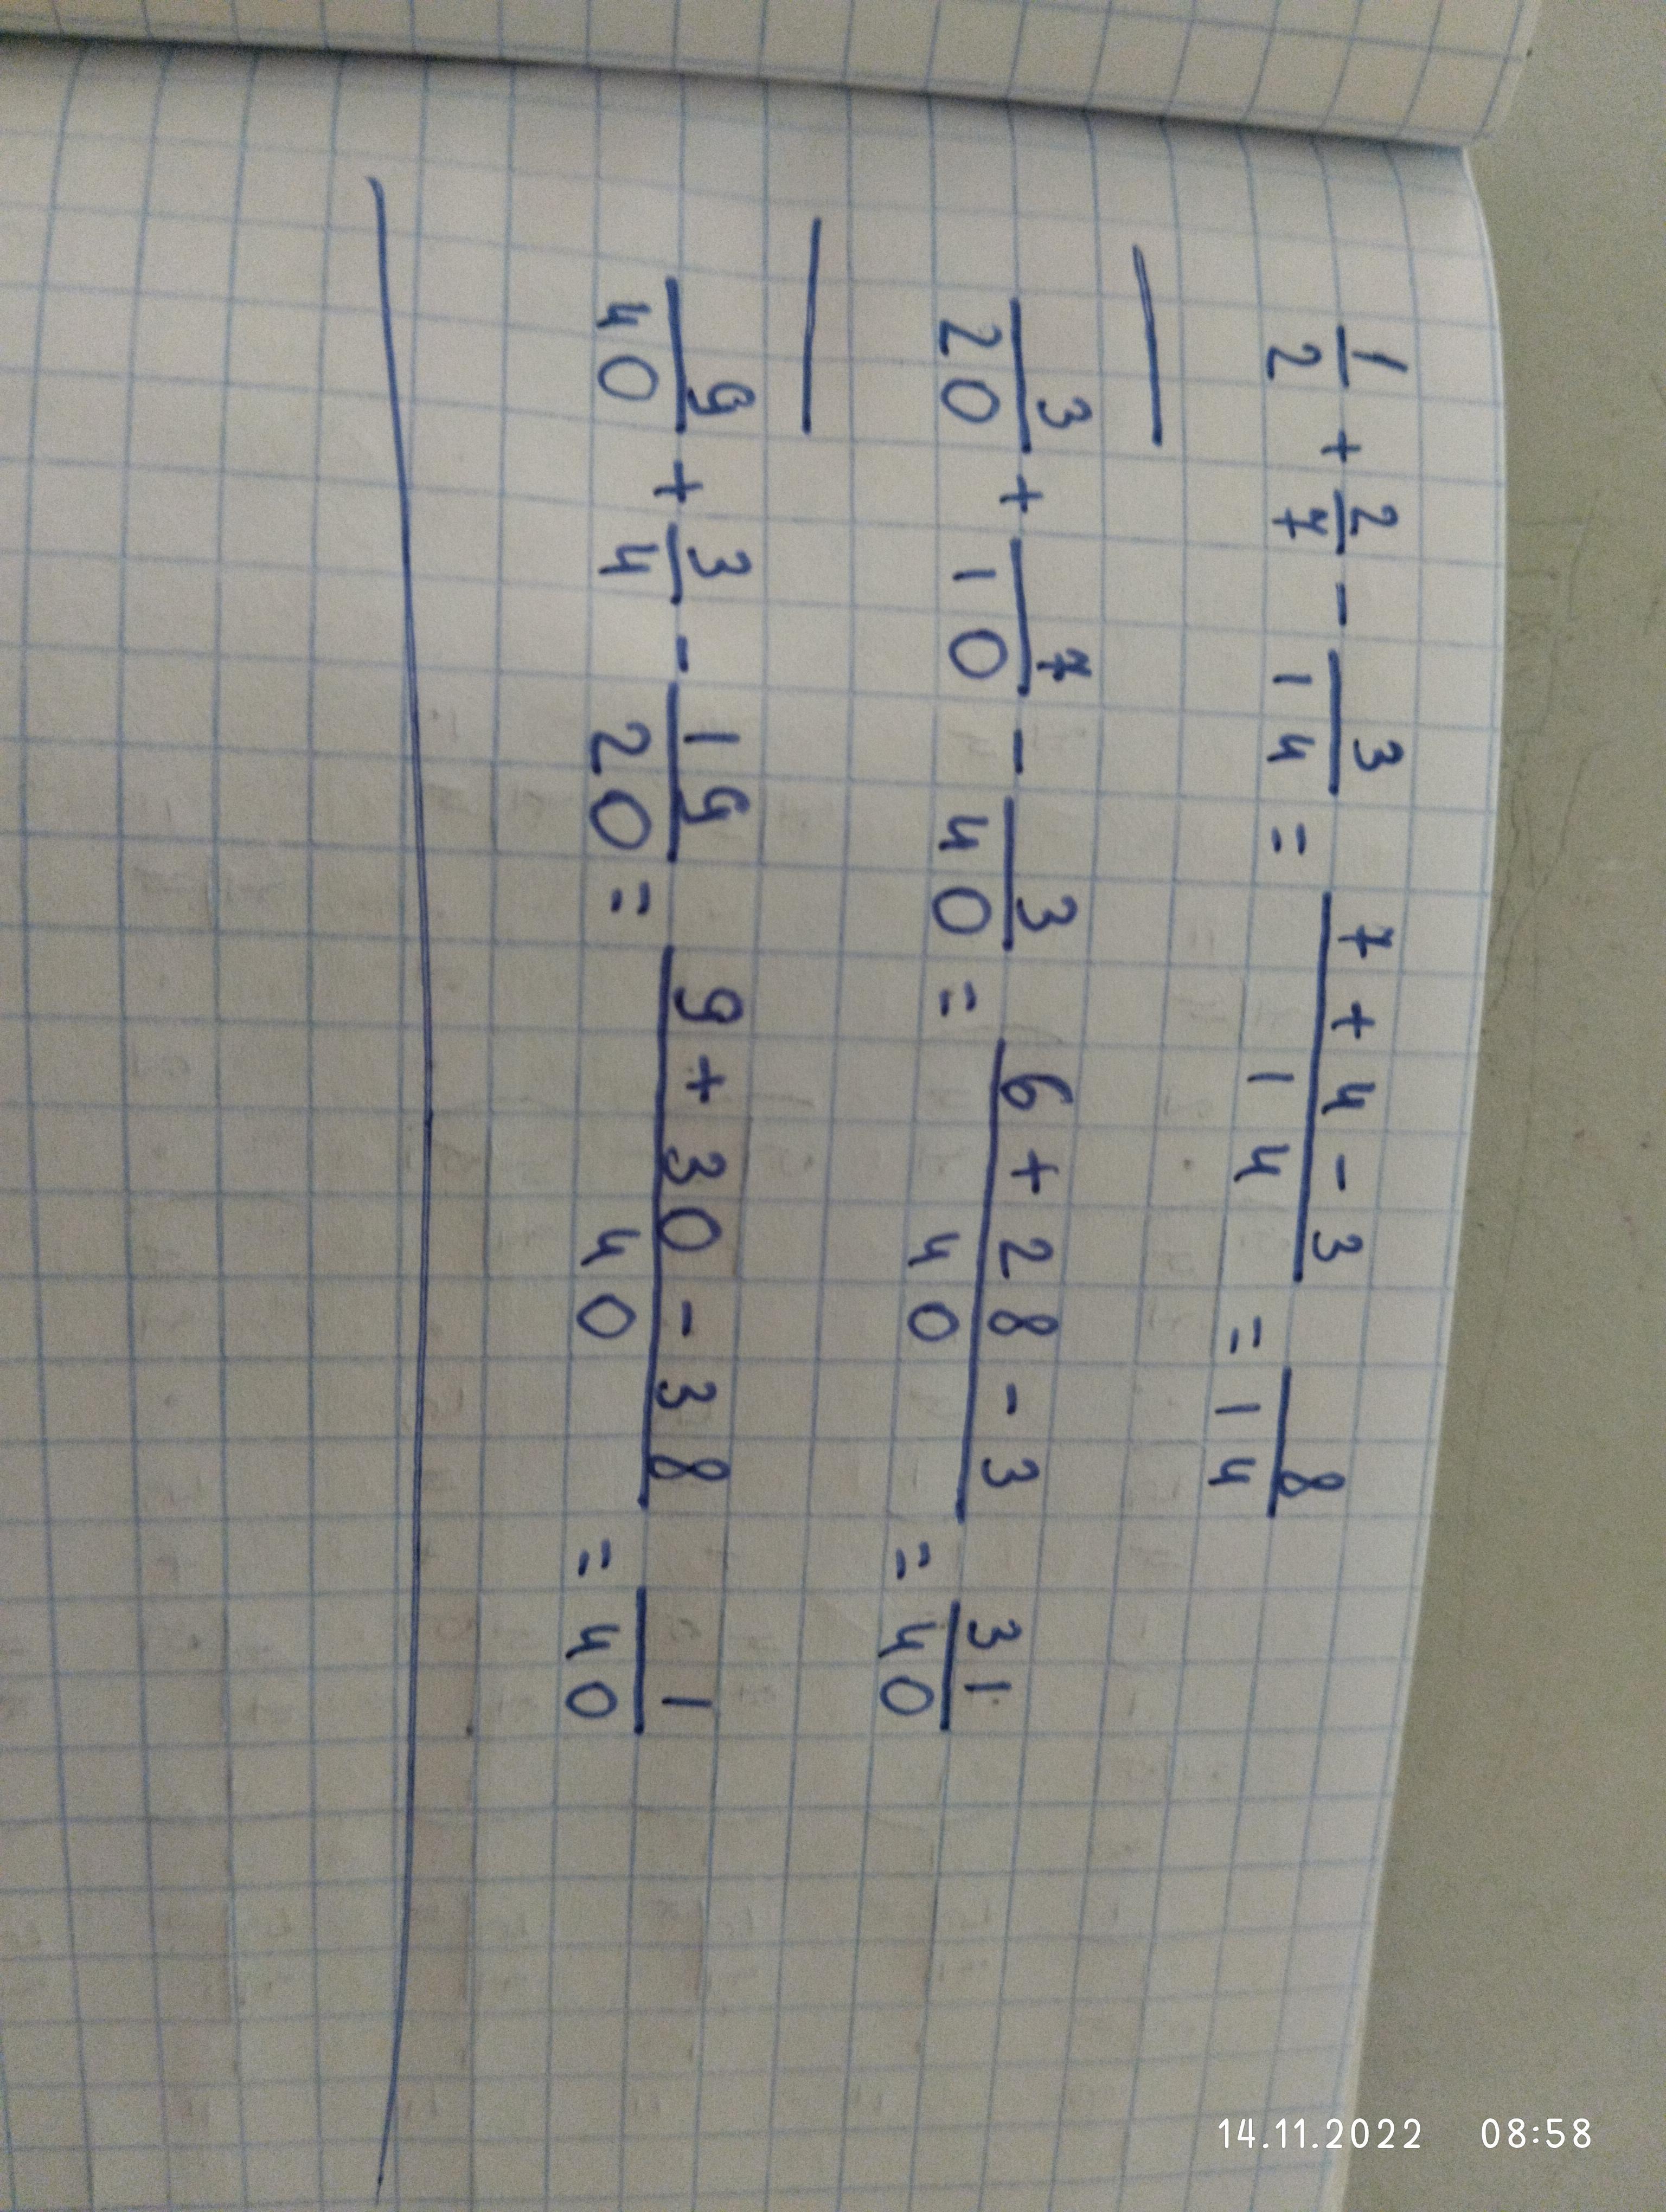 1/2 + 2/7 - 3/14 = (7 + 4 - 3)/14 = 8/14
3/20 + 7/10 - 3/40 = (6 + 28 - 3)/40 = 31/40
9/40 + 3/4 - 19/20 = (9 + 30 - 38)/40 = 1/40
14.11.2022 08:58